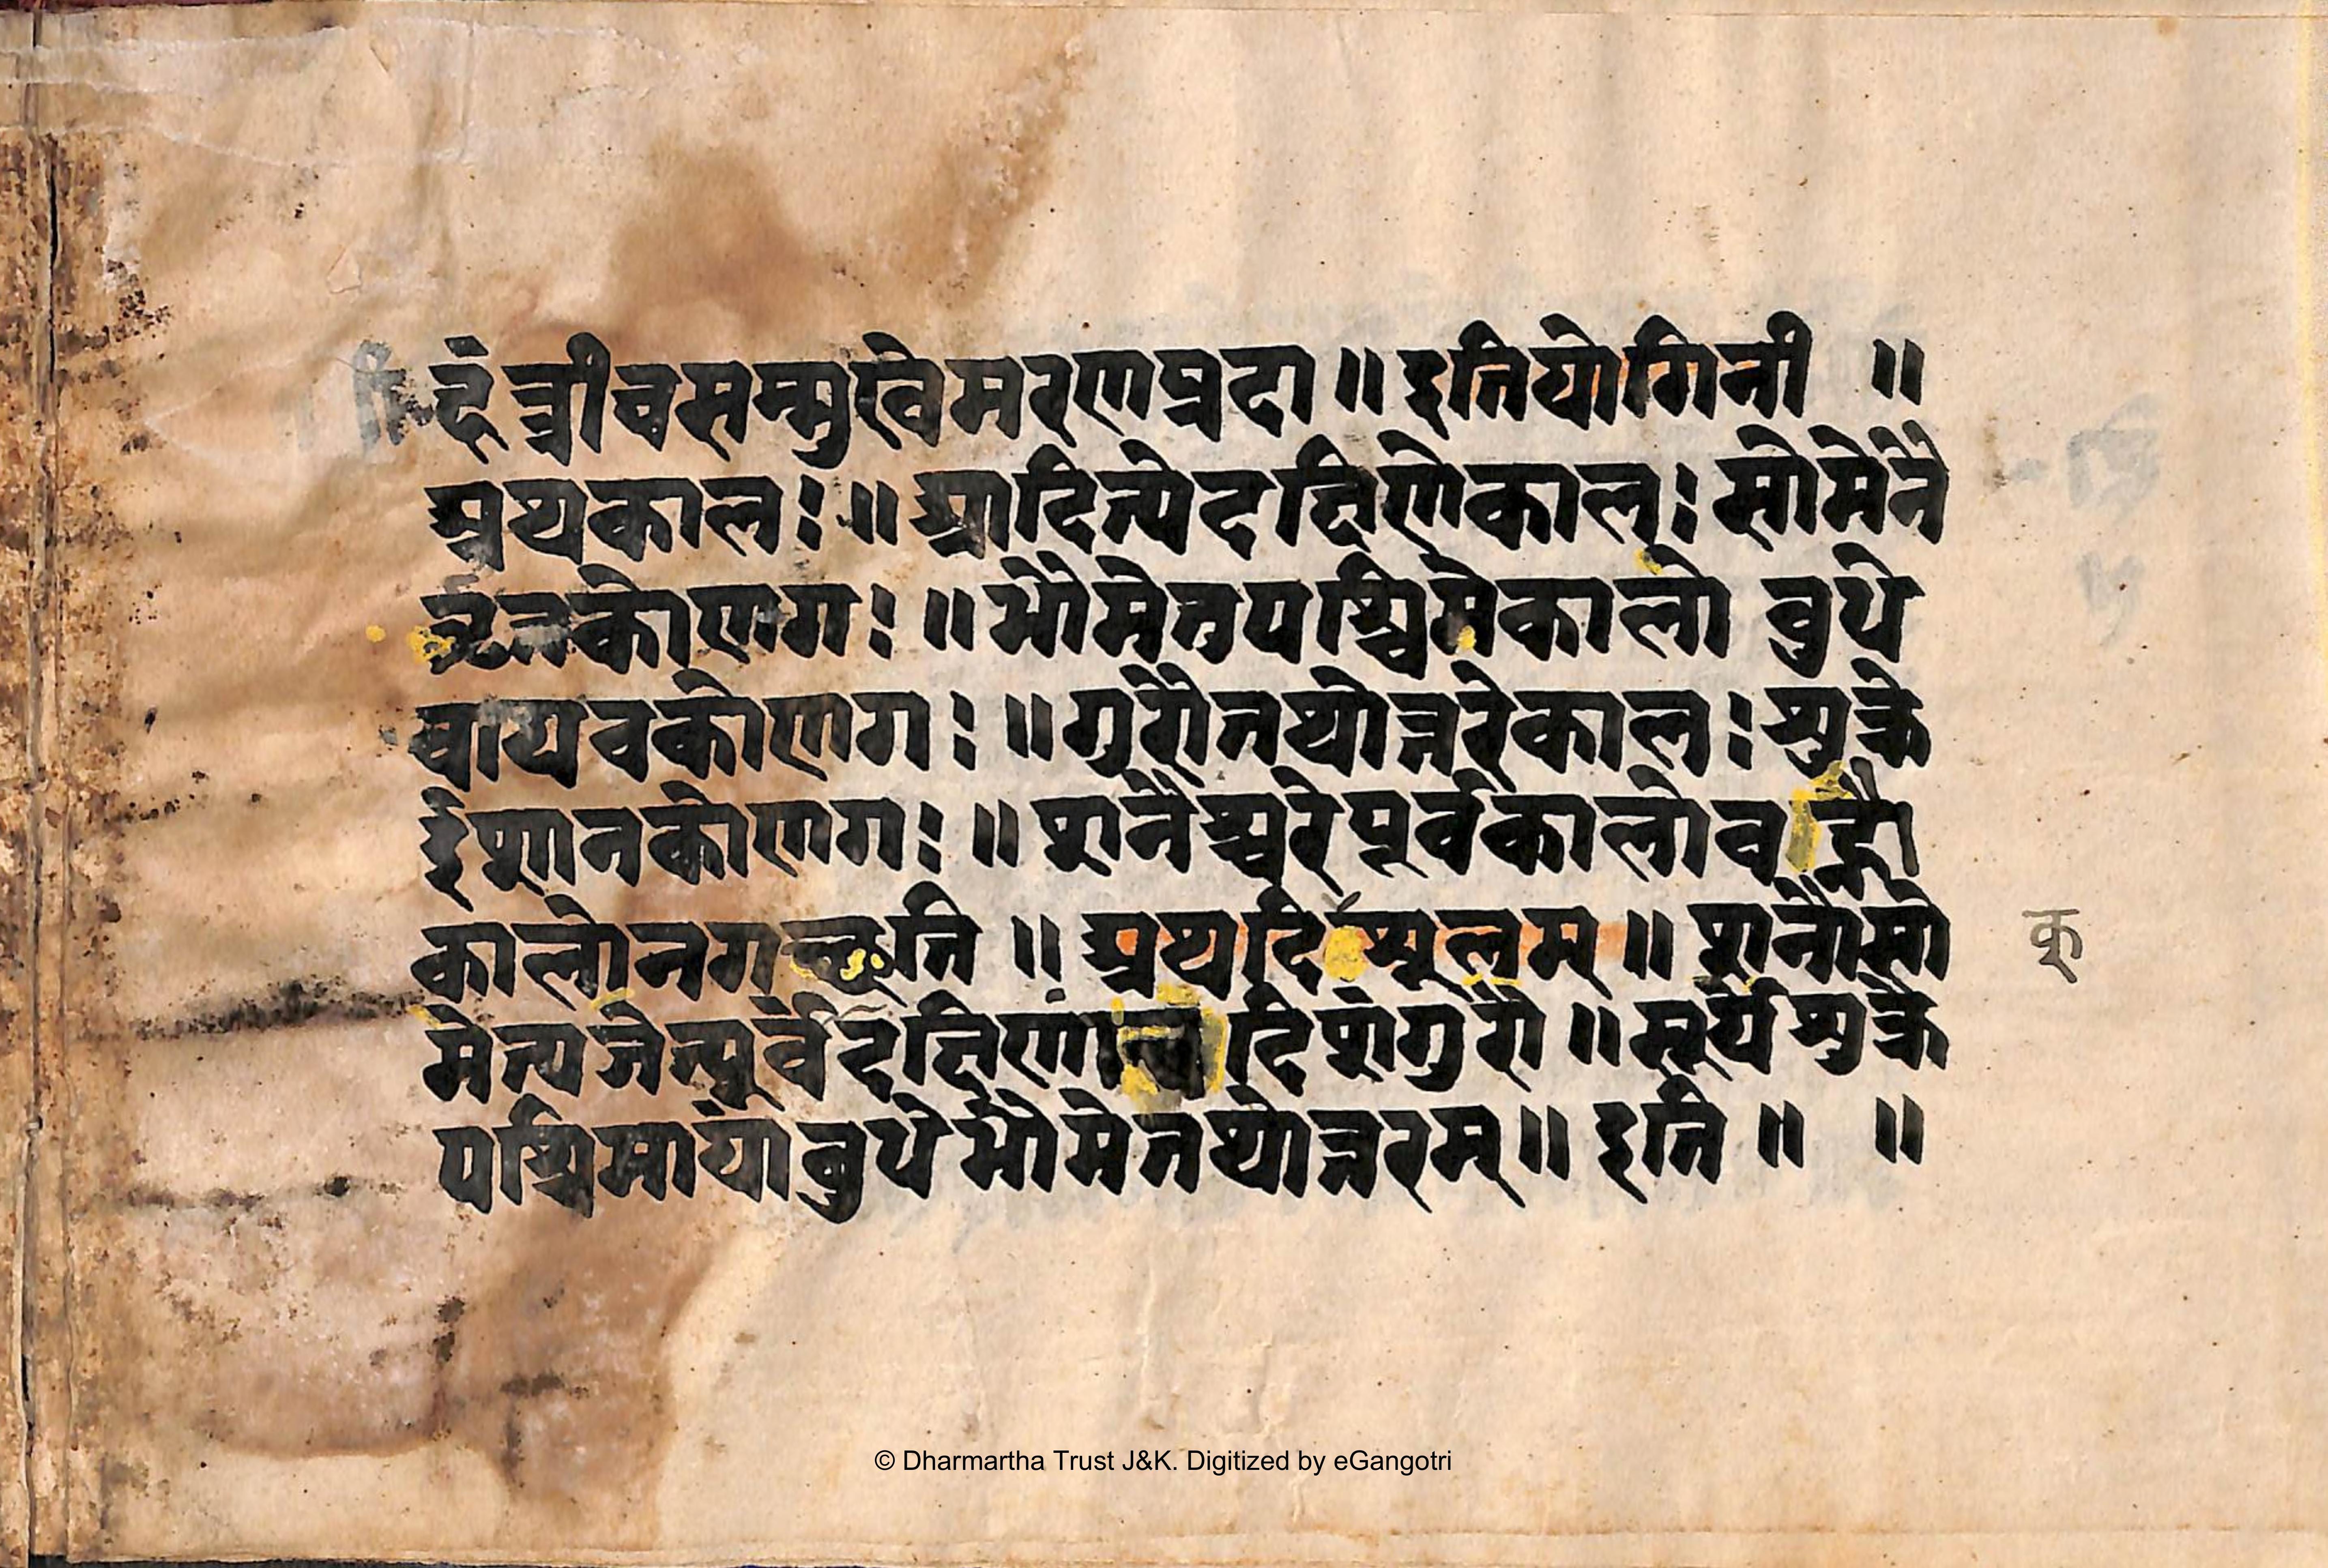 हंत्रीचसन्मुखेमरणप्रदा॥इतियोगिनी ॥
अथकालः॥आदित्येदक्षिणेकालः सोमेनै
रृतकोणगः॥भौमेतुपश्चिमेकालो बुधे
वायवकोणगः॥गुरौतथोत्तरेकालःशुक्रे
ईशानकोणगः॥शनैश्चरेपूर्वकालोच द्रौ
कालोनगच्छति॥अथदिशूलम्॥शनौसो
क्
मेत्यजेत्पूर्वंदक्षिणां दिशंगुरौ॥सूर्येशुक्रे
पश्चिमायांबुधेभौमेतथोत्तरम्॥इति॥ ॥
© Dharmartha Trust J&K. Digitized by eGangotri